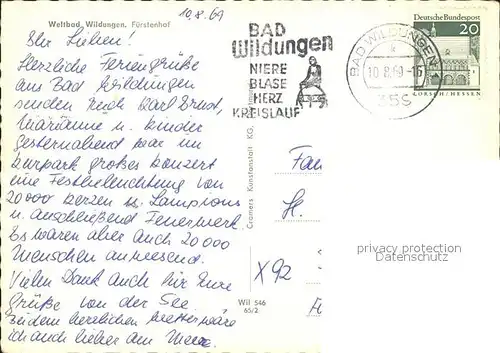 10.8.69
Weltbad Wildungen, Fürstenhof
Ihr Lieben!
Herzliche Feriengrüße
aus Bad Wildungen
senden Euch Karl Ernst,
Marianne u. Kinder
gesternabend war im
Kurpark großes Konzert
eine Festbeleuchtung von
20000 Kerzen u. Lampions
u. anschließend Feuerwerk.
Es waren aber auch 20 000
Menschen anwesend.
Vielen Dank auch für Eure
Grüße von der See
Bei dem herrlichen Wetter wäre
ich auch lieber am Meer.
Cramers Kunstanstalt KG,
Wil 546
65/2
BAD
Wildungen
NIERE
BLASE
HERZ
KREISLAUF
BAD WILDUNGEN
10.8.69-15
356
Deutsche Bundespost
20
LORSCH/HESSEN
Fam
H.
X92
privacy protection
Datenschutz